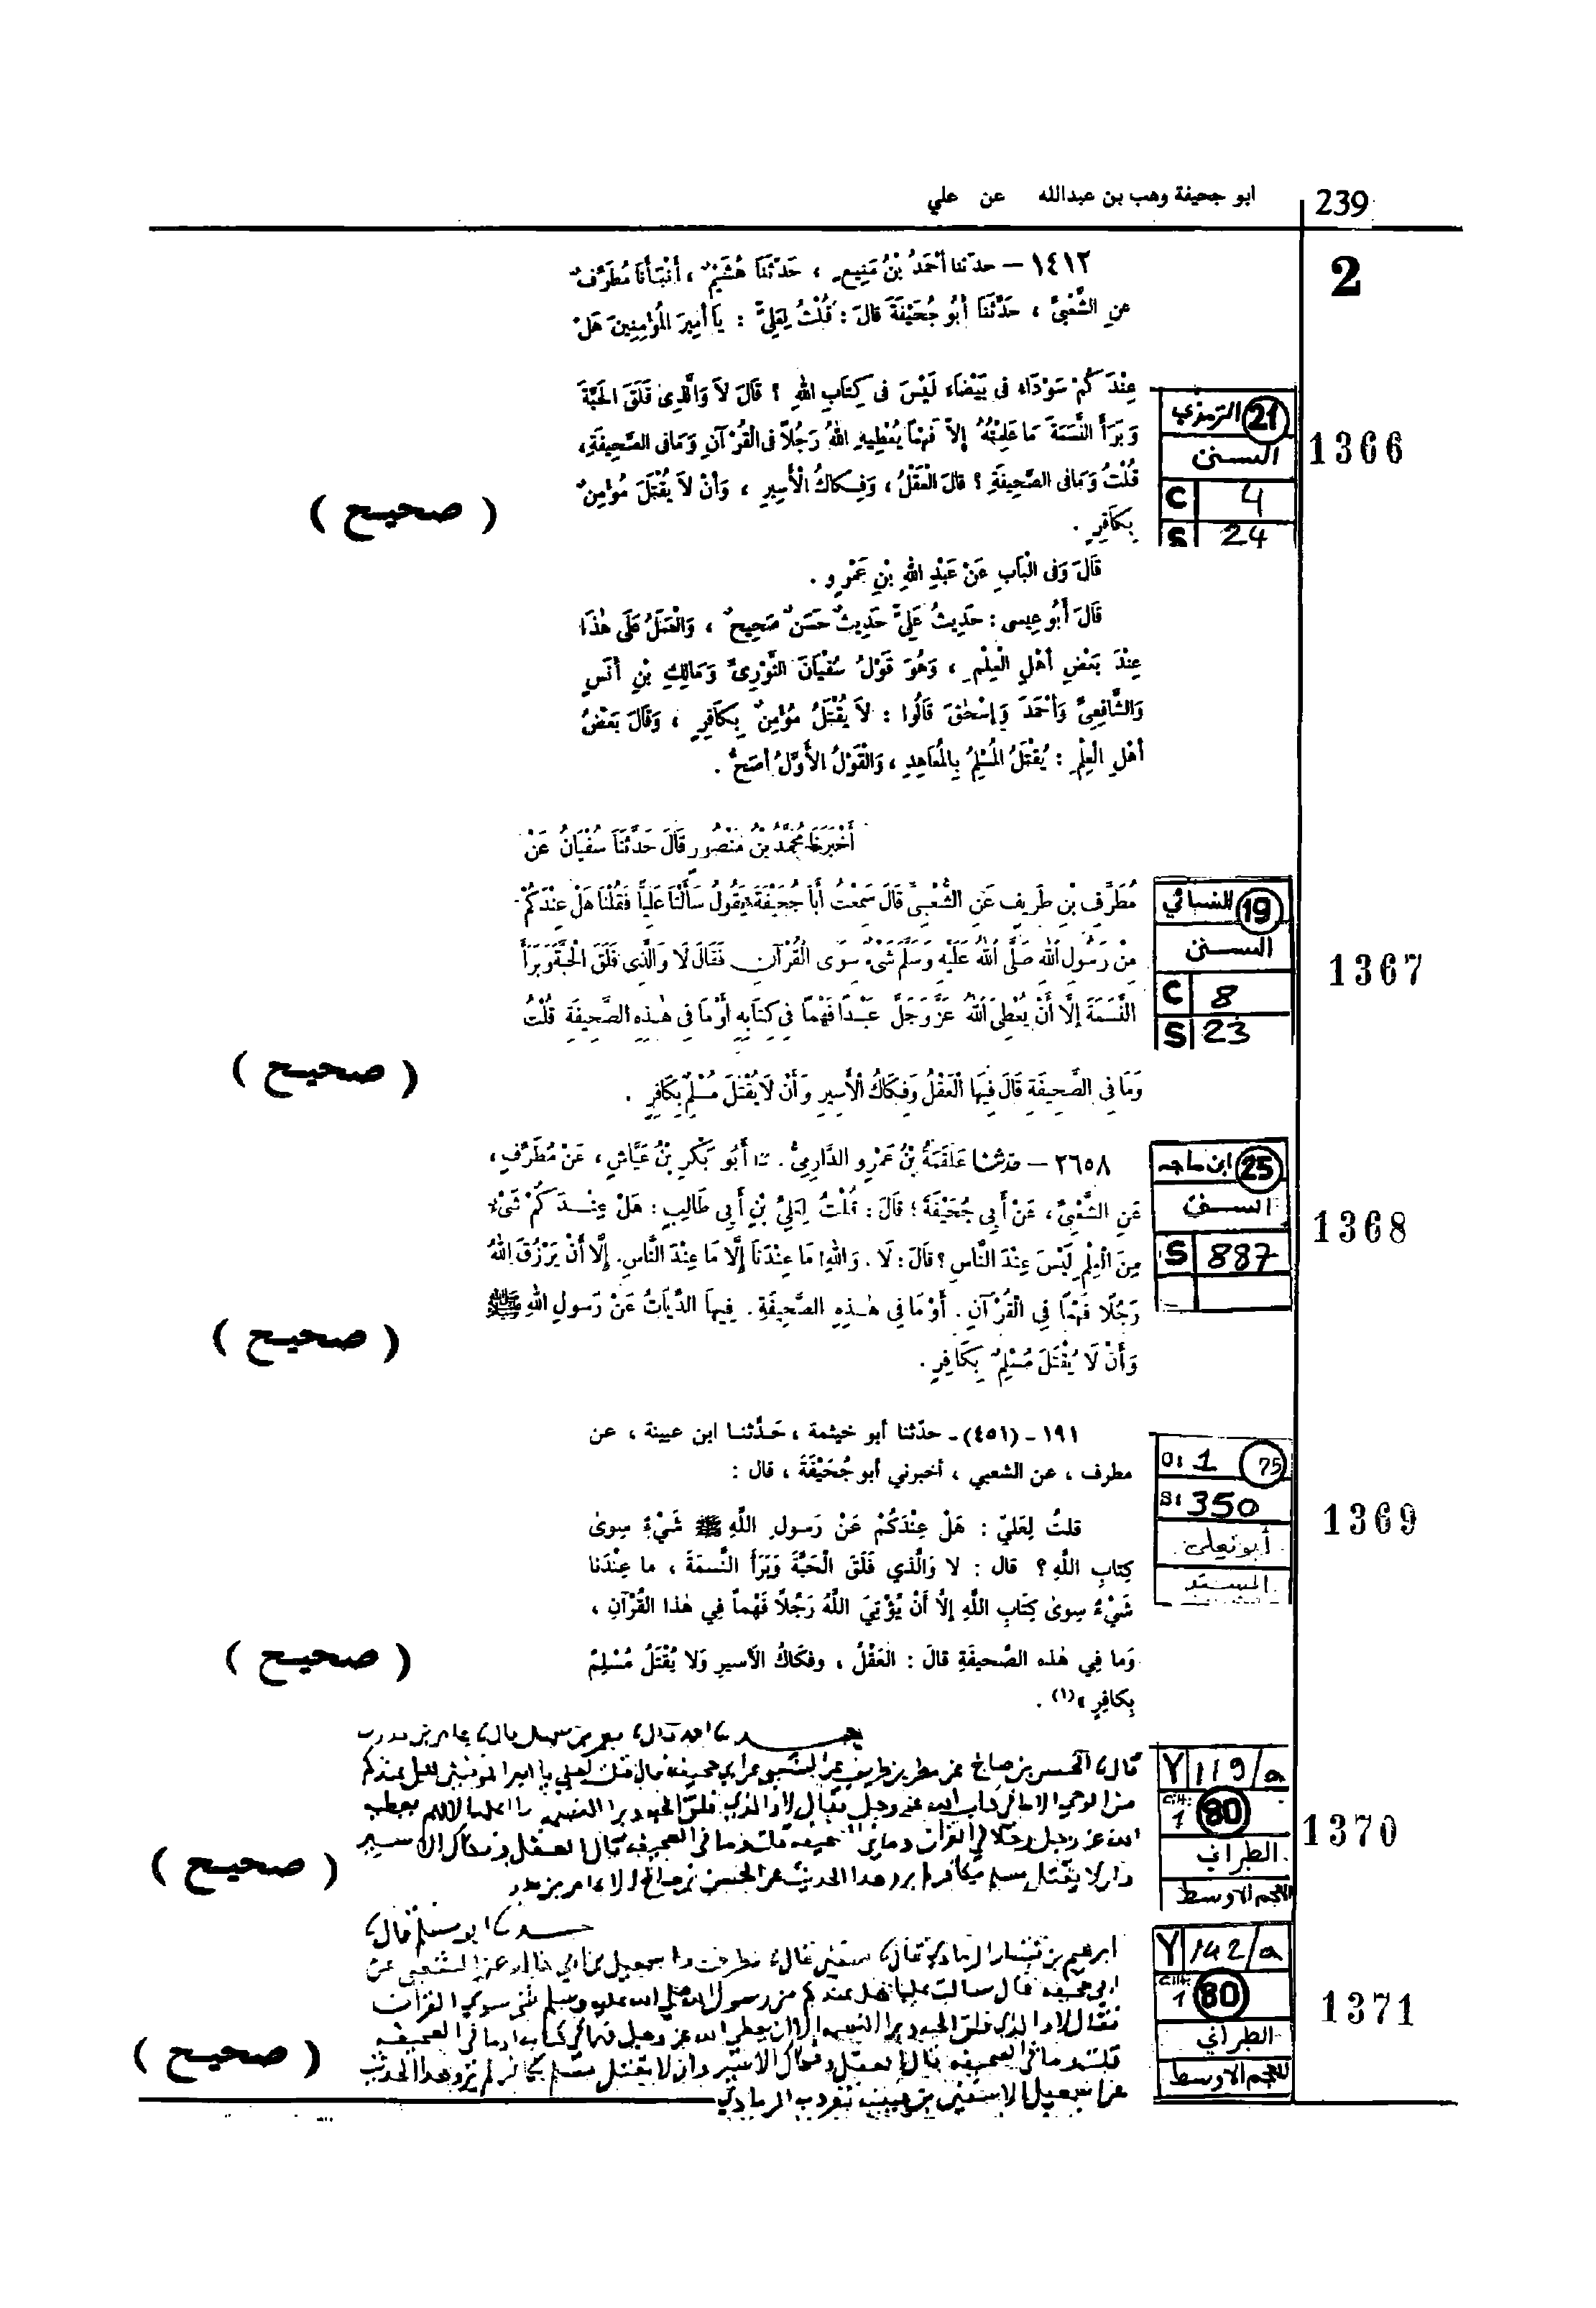 239
ابو جحيفة وهب بن عبدالله عن علي
2
١٤١٢ – حدثنا أَحْمَدُ بْنُ مَنِيعٍ ، حَدَّثَنَا هُشَيْمٌ ، أَنْبَأَنَا مُطَرِّفٌ
عنِ الشَّعْبِيِّ ، حَدَّثَنَا أَبُو جُحَيْفَةَ قالَ : قُلْتُ لِعَلِيٍّ : يَا أمِيرَ المُؤْمِنِينَ هَلْ
عِنْدَكُمْ سَوْدَاءُ فى بَيْضَاءَ لَيْسَ فى كِتَابِ اللهِ ؟ قَالَ لاَ وَالَّذِى فَلَقَ الحَبَّةَ
وَبَرَأَ النَّسَمَةَ مَا عَلِمْتُهُ إلاَّ فَهْمًا يُعْطِيهِ اللهُ رَجُلاً فى الْقُرْآنِ وَمَا فى الصَّحِيفَةِ،
قُلْتُ وَمَا فى الصَّحِيفَةِ ؟ قالَ الْعَقْلُ ، وَفِكَاكُ الْأَسِيرِ ، وَأَنْ لاَ يُقْتَلَ مُؤْمِنٌ
بِكَافِرٍ .
قَالَ وَفى الْبَابِ عَنْ عَبْدِ اللهِ بْنِ عَمْرٍو .
قَالَ أَبُو عِيسى : حَدِيثُ عَلِيٍّ حَدِيثٌ حَسَنٌ صَحِيحٌ ، وَالْعَمَلُ عَلَى هٰذَا
عِنْدَ بَعْضِ أَهْلِ الْعِلْمِ ، وَهُوَ قَوْلُ سُفْيَانَ الثَّوْرِىِّ وَمَالِكِ بْنِ أَنَسٍ
وَالشَّافِعِىِّ وَأَحْمَدَ وَإِسْحٰقَ قَالُوا : لاَ يُقْتَلُ مُؤْمِنٌ بِكَافِرٍ ، وَقَالَ بَعْضُ
أَهْلِ الْعِلْمِ : يُقْتَلُ المُسْلِمُ بِالمُعَاهِدِ ، وَالْقَوْلُ الْأَوَّلُ أَصَحُّ .
21 الترمذي
السنن
C 4
S 24
1366
( صحيح )
أَخْبَرَنَا مُحَمَّدُ بْنُ مَنْصُورٍ قَالَ حَدَّثَنَا سُفْيَانُ عَنْ
مُطَرِّفِ بْنِ طَرِيفٍ عَنِ الشَّعْبِىِّ قَالَ سَمِعْتُ أَبَا جُحَيْفَةَ يَقُولُ سَأَلْنَا عَلِيًّا فَقُلْنَا هَلْ عِنْدَكُمْ
مِنْ رَسُولِ اللهِ صَلَّى اللهُ عَلَيْهِ وَسَلَّمَ شَىْءٌ سِوَى الْقُرْآنِ فَقَالَ لَا وَالَّذِى فَلَقَ الْحَبَّةَ وَبَرَأَ
النَّسَمَةَ إِلَّا أَنْ يُعْطِىَ اللهُ عَزَّ وَجَلَّ عَبْدًا فَهْمًا فِى كِتَابِهِ أَوْ مَا فِى هٰذِهِ الصَّحِيفَةِ قُلْتُ
وَمَا فِى الصَّحِيفَةِ قَالَ فِيهَا الْعَقْلُ وَفِكَاكُ الْأَسِيرِ وَأَنْ لَا يُقْتَلَ مُسْلِمٌ بِكَافِرٍ .
19 النسائي
السنن
C 8
S 23
1367
( صحيح )
٢٦٥٨ – حدثنا عَلْقَمَةُ بْنُ عَمْرٍو الدَّارِمِىُّ . ثنا أَبُو بَكْرِ بْنُ عَيَّاشٍ ، عَنْ مُطَرِّفٍ ،
عَنِ الشَّعْبِىِّ ، عَنْ أَبِى جُحَيْفَةَ ؛ قَالَ : قُلْتُ لِعَلِىِّ بْنِ أَبِى طَالِبٍ : هَلْ عِنْدَكُمْ شَىْءٌ
مِنَ الْعِلْمِ لَيْسَ عِنْدَ النَّاسِ ؟ قَالَ : لَا . وَاللهِ ! مَا عِنْدَنَا إِلَّا مَا عِنْدَ النَّاسِ . إِلَّا أَنْ يَرْزُقَ اللهُ
رَجُلًا فَهْمًا فِى الْقُرْآنِ . أَوْ مَا فِى هٰذِهِ الصَّحِيفَةِ . فِيهَا الدِّيَاتُ عَنْ رَسُولِ اللهِ ﷺ
وَأَنْ لَا يُقْتَلَ مُسْلِمٌ بِكَافِرٍ .
25 ابن ماجه
السنن
S 887
1368
( صحيح )
١٩١ - (٤٥١) - حدّثنا أبو خيثمة ، حَدَّثنا ابن عيينة ، عن
مطرف ، عن الشعبي ، أخبرني أبو جُحَيْفَةَ ، قال :
قلتُ لِعَليّ : هَلْ عِنْدَكُمْ عَنْ رَسولِ اللَّهِ ﷺ شَيْءٌ سِوىٰ
كِتابِ اللَّهِ ؟ قال : لا وَالَّذي فَلَقَ الْحَبَّةَ وَبَرَأَ النَّسمَةَ ، ما عِنْدَنا
شَيْءٌ سِوىٰ كِتَابِ اللَّهِ إِلَّا أَنْ يُؤْتِيَ اللَّهُ رَجُلاً فَهْماً فِي هٰذا القُرْآنِ ،
وَما فِي هٰذه الصَّحيفَةِ قالَ : العَقْلُ ، وفكَاكُ الأَسيرِ وَلا يُقْتَلُ مُسْلِمٌ
بِكافِرٍ »(١) .
0: 1 75
S: 350
أبو يعلى
المسند
1369
( صحيح )
قال الحسن بن صالح عن مطرف بن طريف عن الشعبي عن ابي جحيفه قال قلت لعلي يا امير المومنين هل عندكم
الله عز وجل رجلا في القران وما في الصحيفه قلت وما في الصحيفه قال العقل وفكاك الاسير
وان لا يقتل مسلم بكافر لم يرو هذا الحديث عن الحسن بن صالح الا
Y 119/a
Cilt: 1 80
الطبراني
المعجم الاوسط
1370
( صحيح )
حدثنا ابو مسلم قال
ابرهيم بن بشار الرمادي قال سفين قال مطرف واسمعيل بن ابي خالد عن الشعبي عن
ابي جحيفه قال سالت عليا هل عندكم من رسول الله صلى الله عليه وسلم شي سوى القران
فقال لا والذي فلق الحبه وبرا النسمه الا ان يعطي الله عز وجل فهما في كتابه او ما في الصحيفه
قلت وما في الصحيفه قال العقل وفكاك الاسير وان لا يقتل مسلم بكافر لم يرو هذا الحديث
عن اسمعيل الا سفين بن عيينه تفرد به الرمادي
Y 142/a
Cilt: 1 80
الطبراني
المعجم الاوسط
1371
( صحيح )